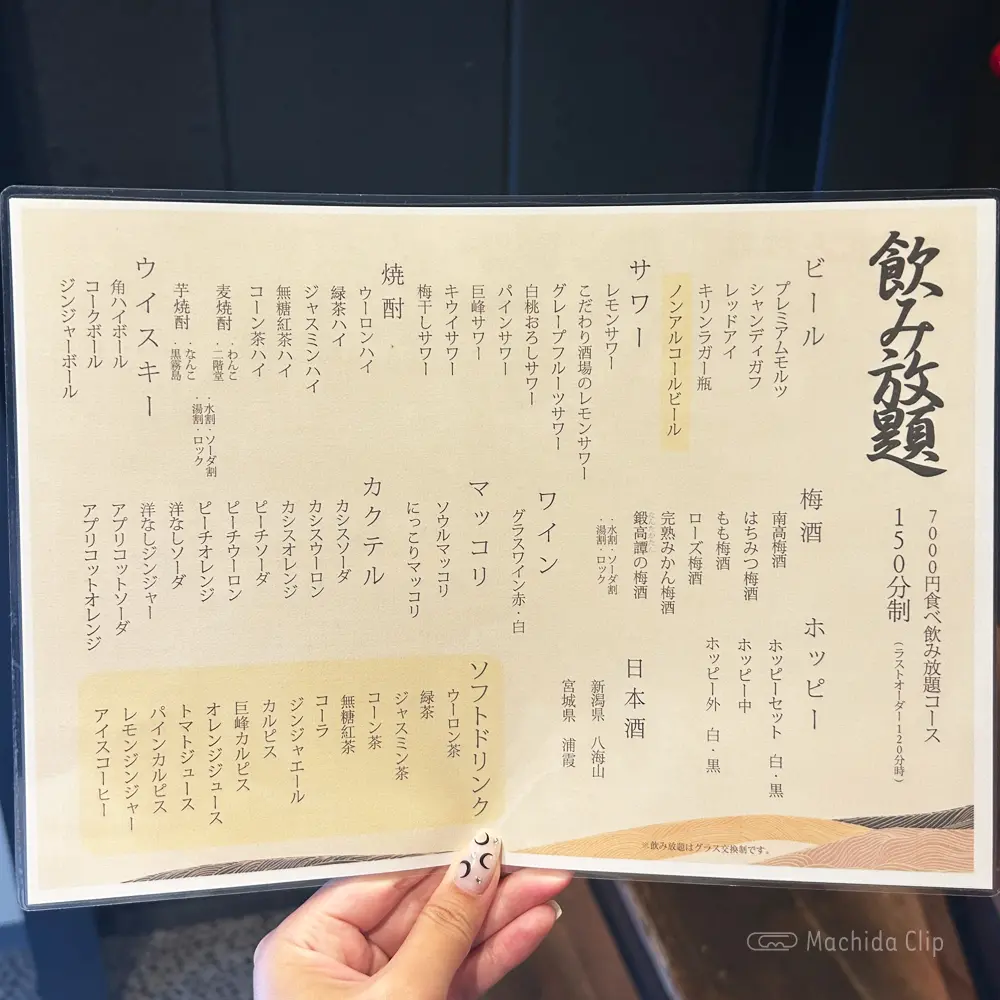 飲み放題
7000円食べ飲み放題コース
150分制
(ラストオーダー120分時)
ビール
プレミアムモルツ
シャンディガフ
レッドアイ
キリンラガー瓶
ノンアルコールビール
サワー
レモンサワー
こだわり酒場のレモンサワー
グレープフルーツサワー
白桃おろしサワー
パインサワー
巨峰サワー
キウイサワー
梅干しサワー
焼酎
ウーロンハイ
緑茶ハイ
ジャスミンハイ
無糖紅茶ハイ
コーン茶ハイ
麦焼酎
・わんこ
・二階堂
芋焼酎
・なんこ
・黒霧島
・水割・ソーダ割
・湯割・ロック
ウイスキー
角ハイボール
コークボール
ジンジャーボール
梅酒
南高梅酒
はちみつ梅酒
もも梅酒
ローズ梅酒
完熟みかん梅酒
鍛高譚の梅酒
・水割・ソーダ割
・湯割・ロック
ワイン
グラスワイン赤・白
マッコリ
ソウルマッコリ
にっこりマッコリ
カクテル
カシスソーダ
カシスウーロン
カシスオレンジ
ピーチソーダ
ピーチウーロン
ピーチオレンジ
洋なしソーダ
洋なしジンジャー
アプリコットソーダ
アプリコットオレンジ
ホッピー
ホッピーセット 白・黒
ホッピー中
ホッピー外 白・黒
日本酒
新潟県 八海山
宮城県 浦霞
ソフトドリンク
ウーロン茶
緑茶
ジャスミン茶
コーン茶
無糖紅茶
コーラ
ジンジャエール
カルピス
巨峰カルピス
オレンジジュース
トマトジュース
パインカルピス
レモンジンジャー
アイスコーヒー
※飲み放題はグラス交換制です。
Machida Clip